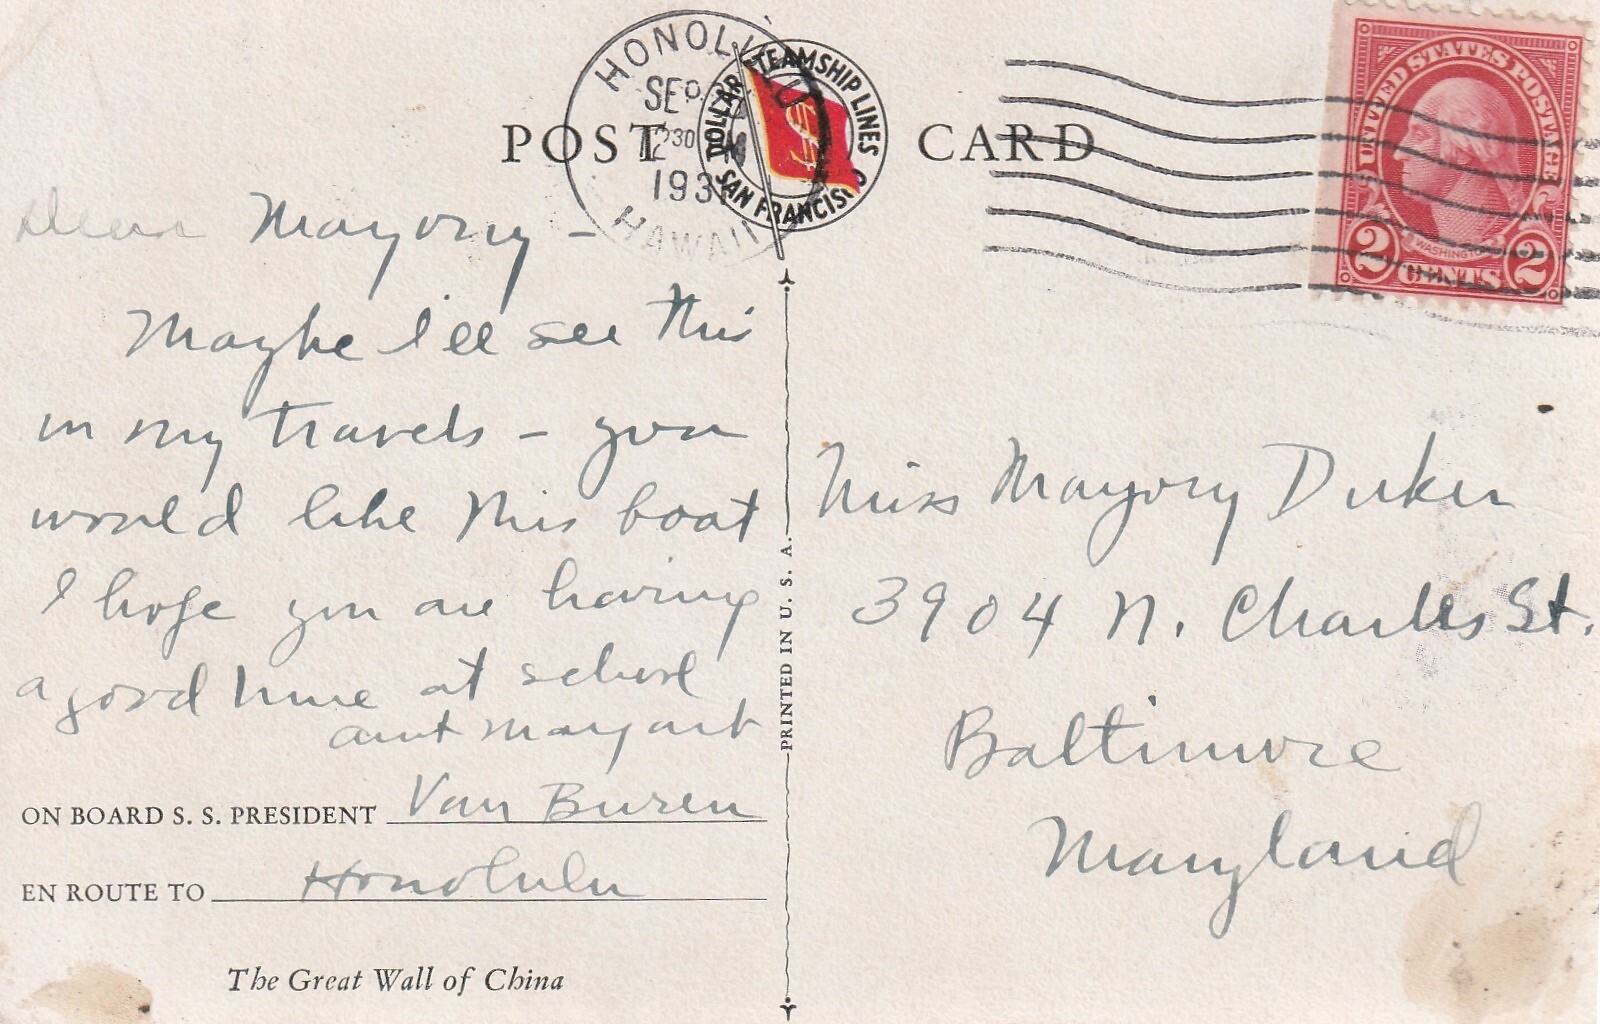 POST CARD
HONOLULU
SEP
2 30 M
193
HAWAII
DOLLAR STEAMSHIP LINES
$
SAN FRANCISCO
UNITED STATES POSTAGE
WASHINGTON
2 CENTS 2
Dear Mayory –
Maybe I'll see this
in my travels – you
would like this boat
I hope you are having
a good time at school
aunt Margaret
ON BOARD S. S. PRESIDENT Van Buren
EN ROUTE TO Honolulu
The Great Wall of China
PRINTED IN U. S. A.
Miss Mayory Duker
3904 N. Charles St.
Baltimore
Maryland